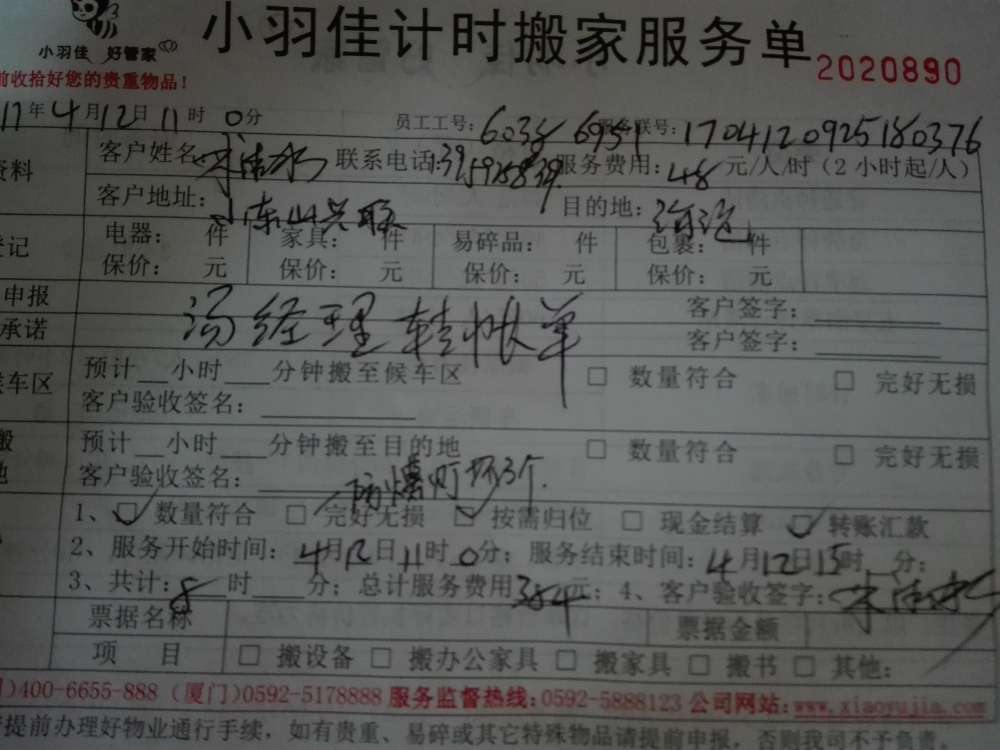 小羽佳 好管家
小羽佳计时搬家服务单
2020890
前收拾好您的贵重物品！
17年4月12日11时0分 员工工号：6038 6951 服务联号：170412092518 0376
资料 客户姓名： 联系电话： 服务费用：48元/人/时（2小时起/人）
客户地址：东山兴联 目的地：海沧
登记 电器： 件 家具： 件 易碎品： 件 包裹： 件
保价： 元 保价： 元 保价： 元 保价： 元
申报 客户签字：
承诺 汤经理转帐单 客户签字：
候车区 预计__小时___分钟搬至候车区 □ 数量符合 □ 完好无损
客户验收签名：
搬 预计__小时___分钟搬至目的地 □ 数量符合 □ 完好无损
地 客户验收签名：
防爆灯坏3个.
1、☑ 数量符合 □ 完好无损 ☑ 按需归位 □ 现金结算 ☑ 转账汇款
2、服务开始时间：4月12日11时0分；服务结束时间：4月12日15时 分；
3、共计：8时 分；总计服务费用384元；4、客户验收签字：
票据名称 票据金额
项 目 □ 搬设备 □ 搬办公家具 □ 搬家具 □ 搬书 □ 其他：
)400-6655-888（厦门)0592-5178888 服务监督热线:0592-5888123 公司网站:www.xiaoyujia.com
提前办理好物业通行手续，如有贵重、易碎或其它特殊物品请提前申报，否则我司不予负责